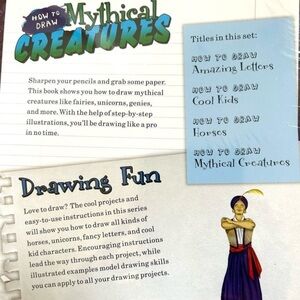 HOW TO
DRAW
Mythical
CREATURES
Sharpen your pencils and grab some paper.
This book shows you how to draw mythical
creatures like fairies, unicorns, genies,
and more. With the help of step-by-step
illustrations, you'll be drawing like a pro
in no time.
Titles in this set:
HOW TO DRAW
Amazing Letters
HOW TO DRAW
Cool Kids
HOW TO DRAW
Horses
HOW TO DRAW
Mythical Creatures
Drawing Fun
Love to draw? The cool projects and
easy-to-use instructions in this series
will show you how to draw all kinds of
horses, unicorns, fancy letters, and cool
kid characters. Encouraging instructions
lead the way through each project, while
illustrated examples model drawing skills
you can apply to all your drawing projects.